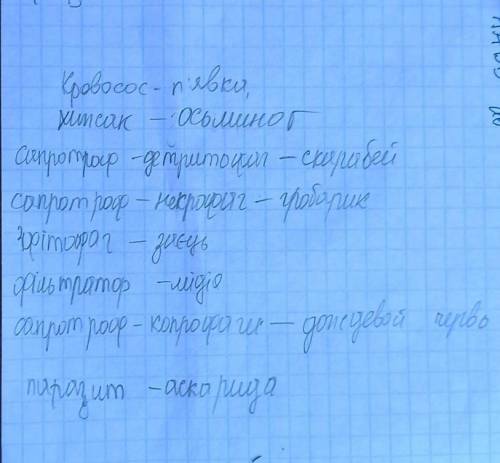 Кровосос - п'явки,
хижак - осьминог
сапротраф - детритофаг - скарабей
сапротроф - некрофаг - гробарик
фітофаг - заєць
фільтратор - мідія
сапротроф - копрофаги - дождевой червь
паразит - аскарида